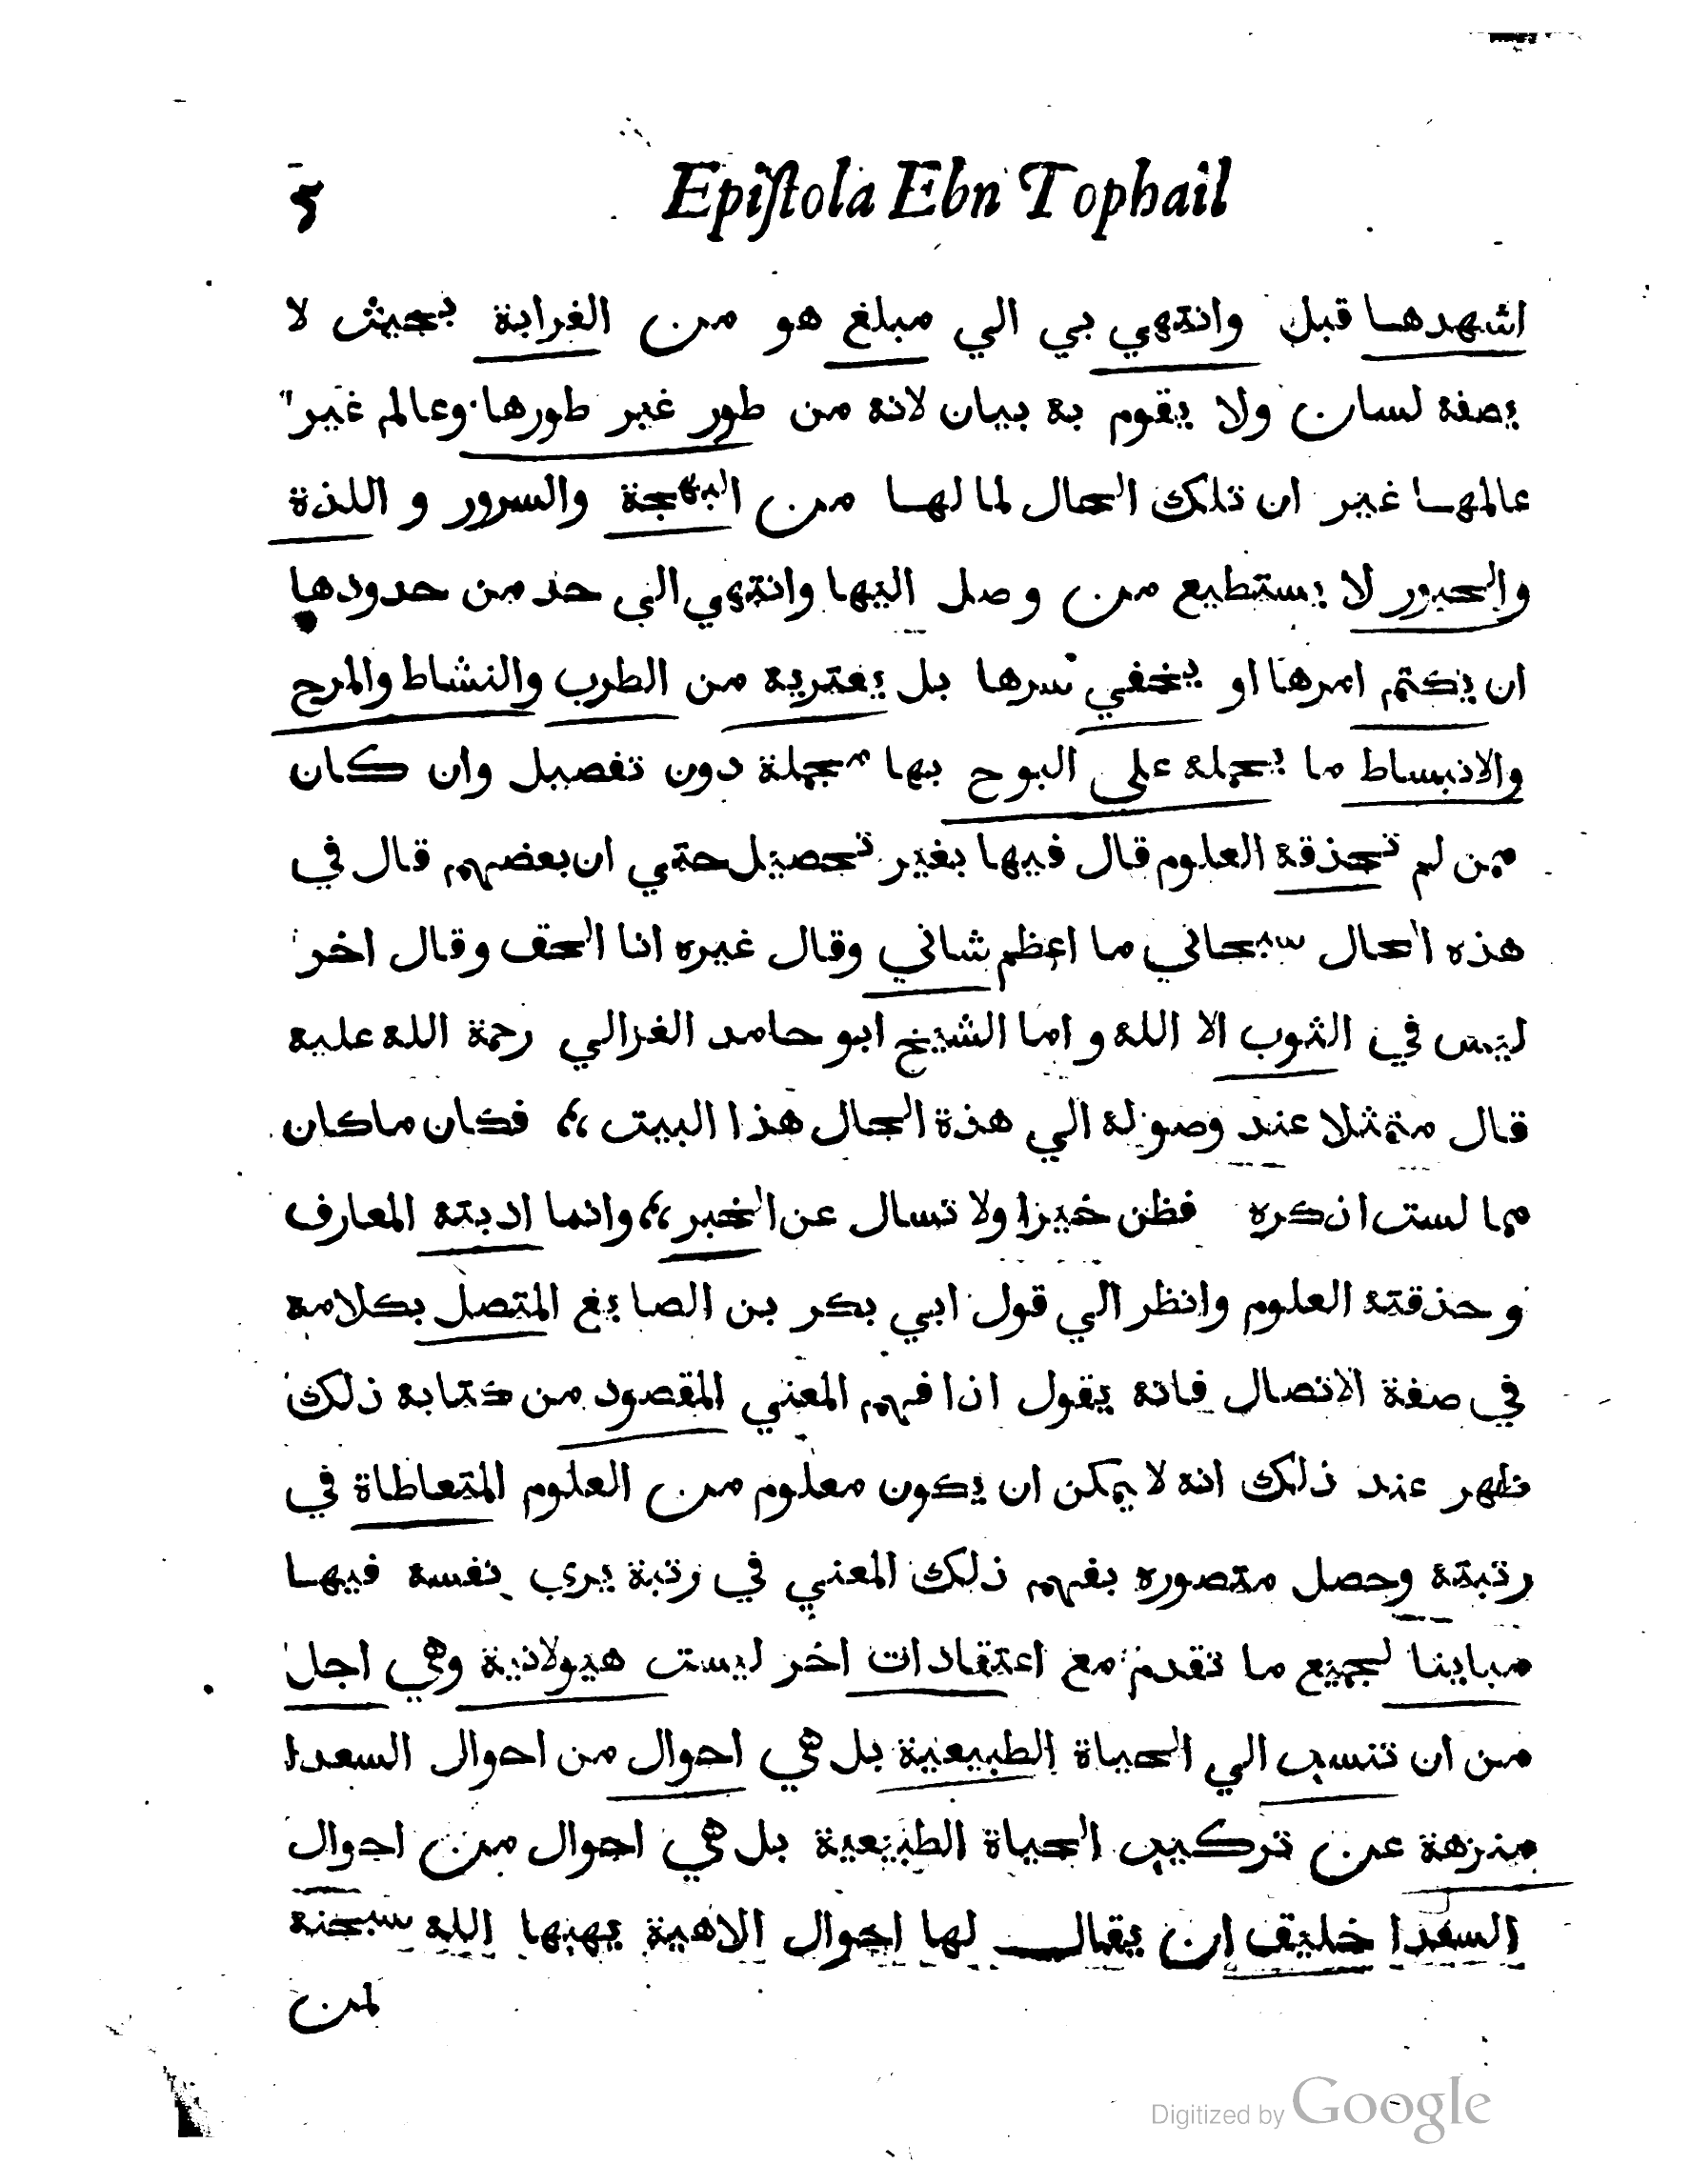 Epistola Ebn Tophail
٥
اشهدها قبل وانتهي بي الي مبلغ هو من الغرابة بحيث لا
يصفه لسان ولا يقوم به بيان لانه من طور غير طورها وعالم غير
عالمها غير ان تلك الحال لما لها من البهجة والسرور و اللذة
والحبور لا يستطيع من وصل اليها وانتهي الي حد من حدودها
ان يكتم امرها او يخفي سرها بل يعتريه من الطرب والنشاط والمرح
والانبساط ما يحمله علي البوح بها مجملة دون تفصيل وان كان
ممن لم تحذقه العلوم قال فيها بغير تحصيل حتي ان بعضهم قال في
هذه الحال سبحاني ما اعظم شاني وقال غيره انا الحق وقال اخر
ليس في الثوب الا الله و اما الشيخ ابو حامد الغزالي رحمة الله عليه
قال متمثلا عند وصوله الي هذه الحال هذا البيت ،، فكان ماكان
مما لست اذكره فظن خيرا ولا تسال عن الخبر ،، وانما ادبته المعارف
و حذقته العلوم وانظر الي قول ابي بكر بن الصايغ المتصل بكلامه
في صفة الاتصال فانه يقول اذا فهم المعني المقصود من كتابه ذلك
ظهر عند ذلك انه لا يمكن ان يكون معلوم من العلوم المتعاطاة في
رتبته وحصل متصوره بفهم ذلك المعني في رتبة يري نفسه فيها
مباينا لجميع ما تقدم مع اعتقادات اخر ليست هيولانية وهي اجل
من ان تنسب الي الحياة الطبيعية بل هي احوال من احوال السعدا
منزهة عن تركيب الحياة الطبيعية بل هي احوال من احوال
السعدا خليق ان يقال لها احوال الاهية يهبها الله سبحنه
لمن
Digitized by Google